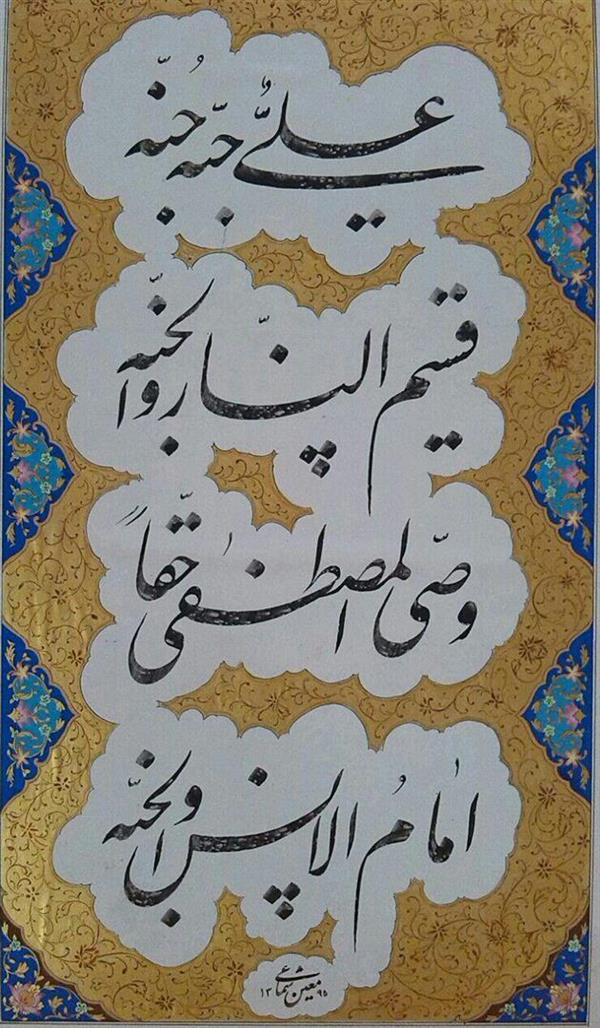 علیٌّ حبّه جُنّه
قسیم النّار والجنّه
وصّی المصطفی حقّاً
امامُ الانس والجنّه
معین شمائی ۱۳۹۵